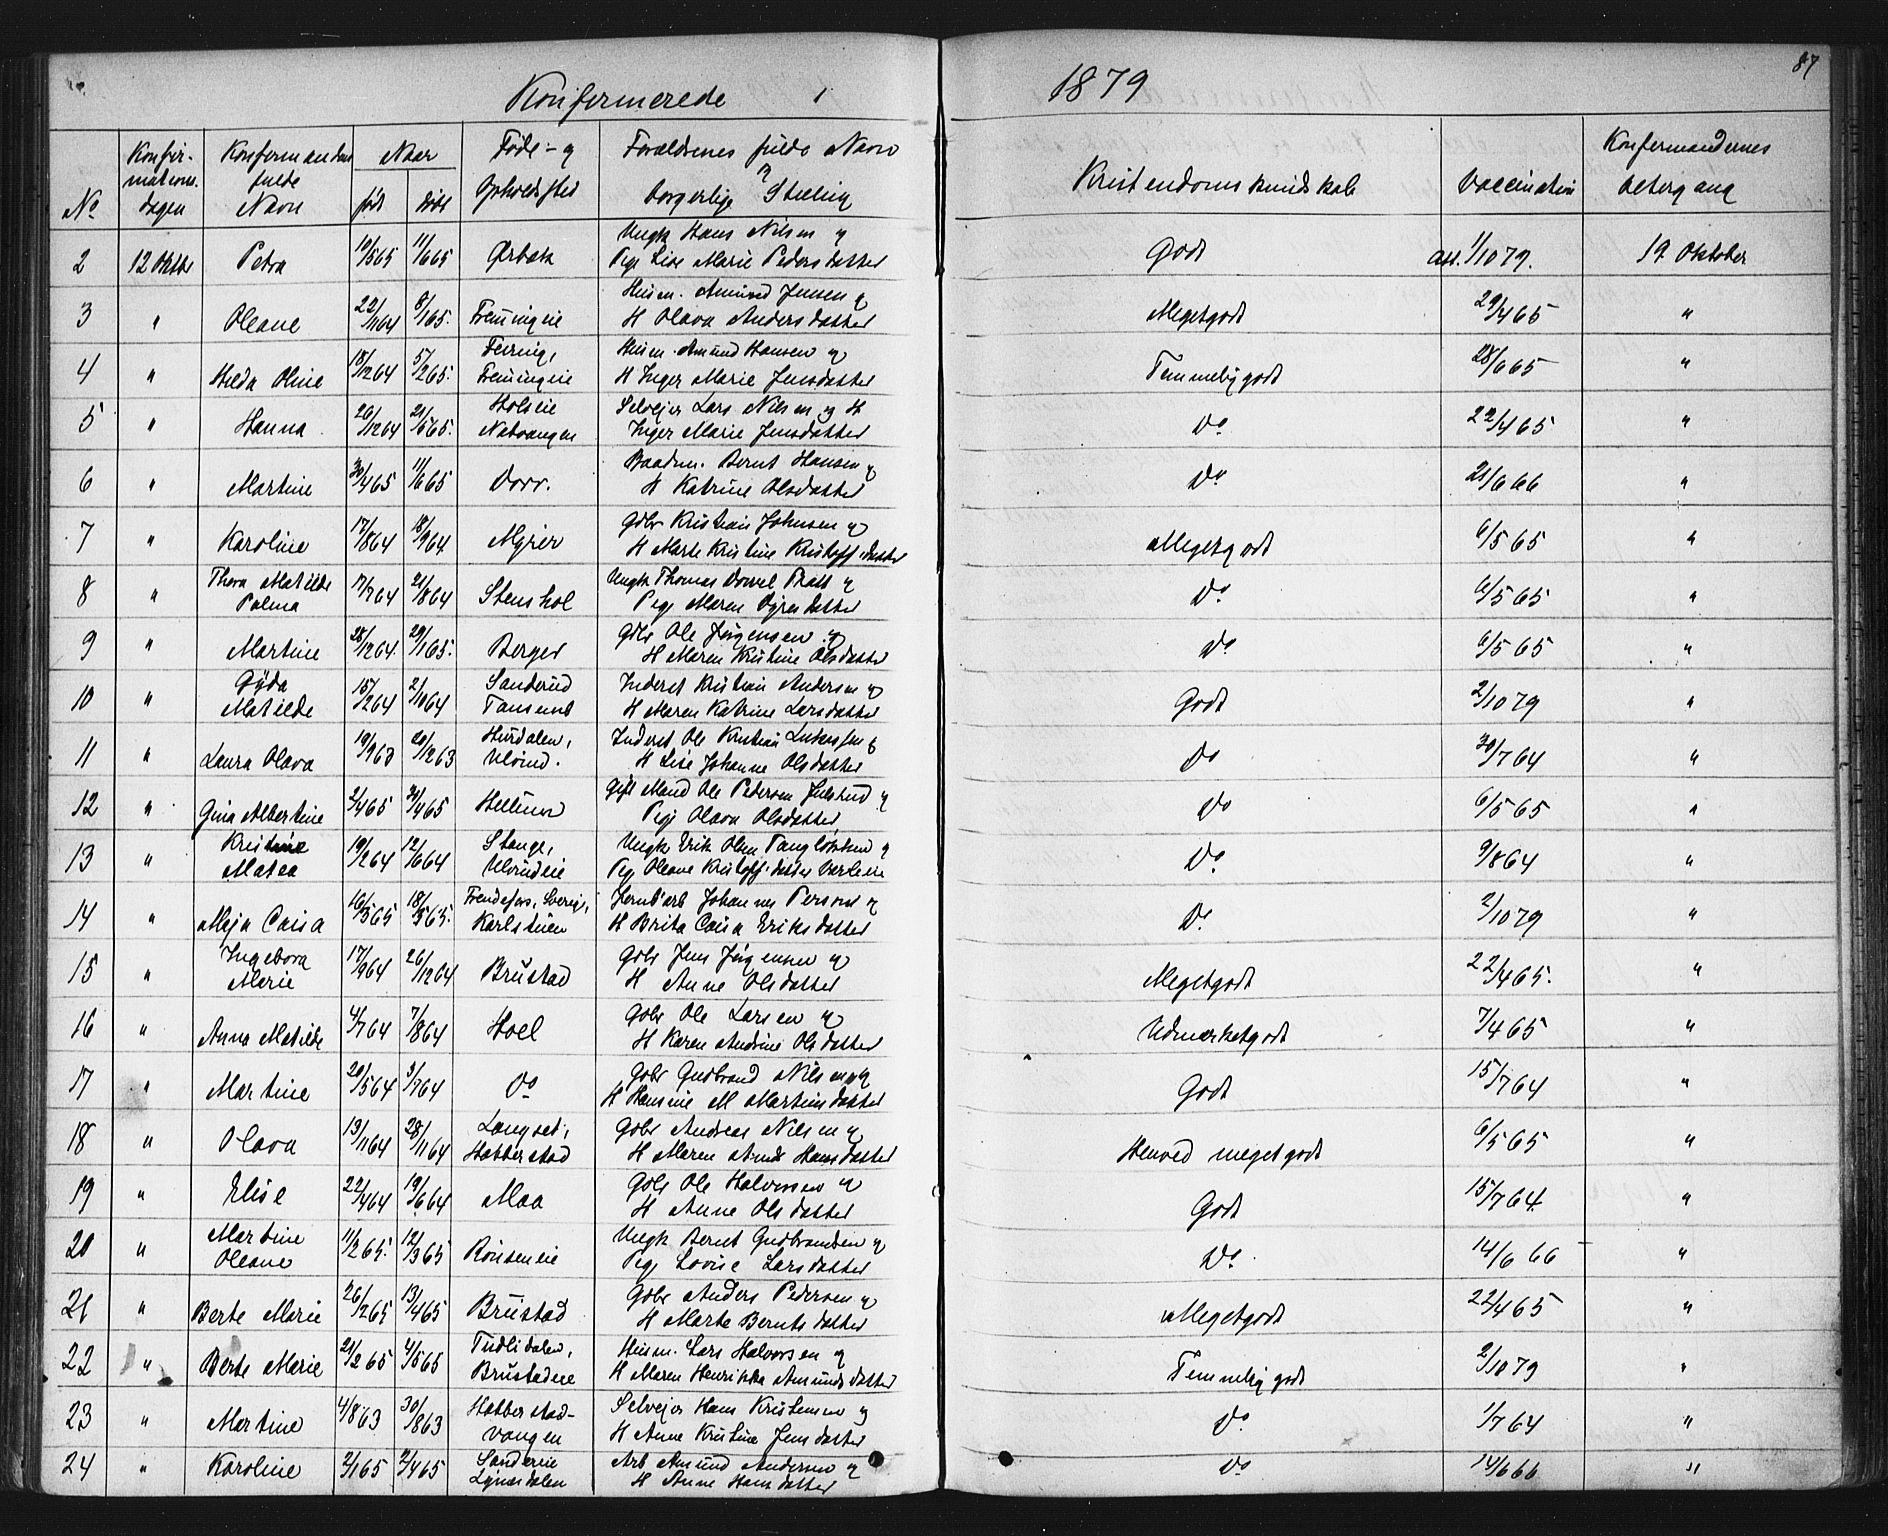 Konfermerede 1879
87
No | Konfir-mations-dagen | Konfermandens fulde Navn | Naar født | døbt | Føde- og Opholdsted | Forældrenes fulde Navn og borgerlige Stilling | Kristendomskundskab | Vaccination | Konfermandernes Altergang
2 | 12 Oktbr | Petra | 10/5 65 | 11/6 65 | Ørbæk | Ungk Hans Nilsen og Pige Lise Marie Pedersdatter | Godt | att. 1/10 79. | 19 Oktober
3 | " | Oleane | 22/11 64 | 8/1 65. | Fremingeie | Husm. Amund Jensen og H Olava Andersdatter | Megetgodt | 29/4 65 | "
4 | " | Hilda Oline | 18/12 64 | 5/2 65. | Feiring, Fremingeie | Husm. Amund Hansen og H Inger Marie Jensdatter | Temmelig godt | 28/6 65 | "
5 | " | Hanna | 26/12 64 | 21/5 65. | Holseie Nabvangen | Selveier Lars Nilsen og H Inger Marie Jensdatter | Do | 22/4 65 | "
6 | " | Martine | 30/4 65 | 11/6 65 | Dorr. | Baadm. Bernt Hansen og H Katrine Olsdatter | Do | 21/6 66 | "
7 | " | Karoline | 17/8 64 | 18/9 64. | Myrer | Gbr Kristian Johnsen og H Marte Kristine Kristoffersdatter | Megetgodt | 6/5 65 | "
8 | " | Thora Matilde Palma | 17/7 64 | 21/8 64 | Stenshol | Ungk Thomas Dorvel Thatt og Pige Maren Dyresdatter | Do | 6/5 65 | "
9 | " | Martine | 28/12 64. | 29/1 65. | Berger | Gbr Ole Jørgensen og H Maren Kristine Olsdatter | Do | 6/5 65 | "
10 | " | Gyda Matilde | 15/2 64 | 2/10 64 | Sanderud Tansemb | Inderst Kristian Andersen og H Maren Katrine Larsdatter | Godt | 2/10 79 | "
11 | " | Laura Olava | 19/9 63 | 20/12 63 | Hurdalen, Ulvind. | Inderst Ole Kristian Lukassen og H Lise Johanne Olsdatter | Do | 30/7 64 | "
12 | " | Gina Albertine | 2/4 65 | 30/4 65 | Hellum | Gift Mand Ole Pedersen Julsrud og Pige Olava Olsdatter | Do | 6/5 65 | "
13 | " | Kristine Matea | 19/2 64 | 12/6 64 | Stange, Ulvindeie | Ungk Erik Olsen Tangløkken og Pige Oleane Kristoffersdatter | Do | 9/8 64 | "
14 | " | Maja Caisa | 16/5 65 | 18/5 65. | Frendefors, Sverige, Karlstuen | Jernb'arb Johannes Person og H Brita Caisa Eriksdatter | Do | 2/10 79 | "
15 | " | Ingebora Marie | 17/9 64 | 26/12 64 | Brustad | Gbr Jens Jørgensen og H Anne Olsdatter | Megetgodt | 22/4 65. | "
16 | " | Anna Matilde | 4/7 64 | 7/8 64 | Hoel | Gbr Ole Larsen og H Karen Andrine Olsdatter | Udmærketgodt | 7/4 65 | "
17 | " | Martine | 20/5 64 | 3/7 64 | Do | Gbr Gudbrand Nilsen og H Hansine M Martinsdatter | Godt | 15/7 64 | "
18 | " | Olava | 13/11 64 | 28/11 64 | Langset, Habberstad | Gbr Andreas Nilsen og H Maren Anne Hansdatter | Henved megetgodt | 6/5 65 | "
19 | " | Elise | 22/4 64 | 19/6 64 | Maa | Gbr Ole Halvorsen og H Anne Olsdatter | Godt | 15/7 64 | "
20 | " | Martine Oleane | 11/2 65. | 12/3 65 | Rønseneie | Ungk Bernt Gudbrandsen og Pige Lovise Larsdatter | Do | 14/6 66 | "
21 | " | Berte Marie | 26/2 65 | 13/4 65 | Brustad | Gbr Anders Pedersen og H Marte Berntsdatter | Megetgodt | 22/4 65 | "
22 | " | Berte Marie | 21/2 65 | 4/5 65 | Tudlidalen, Brustadeie | Husm. Lars Halvorsen og H Maren Henrikka Amundsdatter | Temmelig godt | 2/10 79 | "
23 | " | Martine | 4/8 63 | 30/8 63 | Habberstad-vangen | Selveier Hans Kristensen og H Anne Kristine Jensdatter | Do | 1/7 64 | "
24 | " | Karoline | 2/1 65 | 2/4 65 | Sandereie Lynesdalen | Arb Amund Andersen og H Anne Hansdatter | Do | 14/6 66 | "